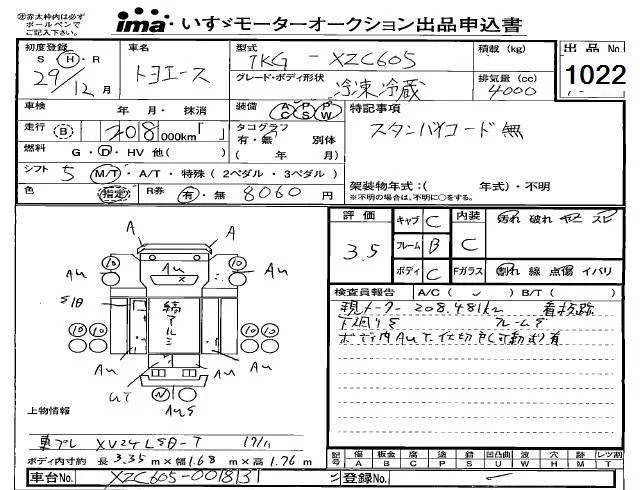 ㊟赤太枠内は必ず
ボールペンで
ご記入下さい。
ima いすゞモーターオークション出品申込書
初度登録 車名 型式 積載 (kg) 出品No
S・H・R トヨエース TKG-XZC605 1022
29/12月 グレード・ボディ形状 冷凍冷蔵 排気量 (cc) 4000
車検 年 月・抹消 装備 AC PS PW 特記事項
走行 B 208,000km「 」 タコグラフ 有・無 別体 スタンバイコード無
燃料 G・D・HV 他( ) ( 年 月)
シフト 5 M/T・A/T・特殊(2ペダル・3ペダル) 架装物年式:( 年式)・不明
※不明の場合は、不明に○をする。
色 指定 R券 有・無 8060円
評価 3.5 キャブ C 内装 C 汚れ 破れ ヤニ スレ
フレーム B
ボディ C Fガラス 割れ 線 点傷 イバリ
検査員報告 A/C( ) B/T( )
現メーター 208,481km 看板跡
下廻りS フレームS
A A
10 10
Au Au Au
X
S1B
縞アルミ
Au Au
UT
N
AUS
上物情報
東プレ XV24LSB-T 17/11
ボディ内寸約 長 3.35 m×幅 1.68 m×高 1.76 m
記号 傷A 板金B 腐C 塗P 錆S 凹凸曲U 波W 穴H 跡M レツ割T
車台No. XZC605-0018131 登録No.